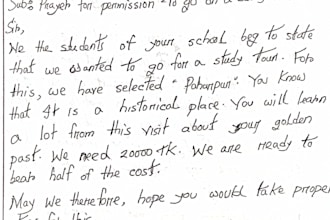 Sub: Prayer for permission to go on a
Sir,
We the students of your school beg to state
that we wanted to go for a study tour. For
this, we have selected "Paharpur". You know
that It is a historical place. You will learn
a lot from this visit about your golden
past. We need 20000 TK. We are ready to
bear half of the cost.
May we therefore, hope you would take proper